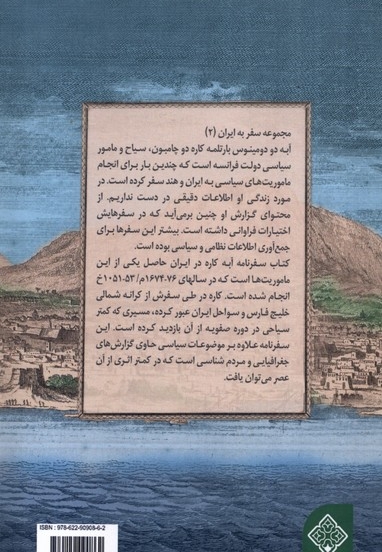 مجموعه سفر به ایران (۲)
آبه دو دومینوس بارتلمه کاره دو چامبون، سیاح و مامور
سیاسی دولت فرانسه است که چندین بار برای انجام
ماموریت‌های سیاسی به ایران و هند سفر کرده است. در
مورد زندگی او اطلاعات دقیقی در دست نداریم. از
محتوای گزارش او چنین برمی‌آید که در سفرهایش
اختیارات فراوانی داشته است. بیشتر این سفرها برای
جمع‌آوری اطلاعات نظامی و سیاسی بوده است.
کتاب سفرنامه آبه کاره در ایران حاصل یکی از این
ماموریت‌ها است که در سالهای ۷۶-۱۶۷۴م/۵۳-۱۰۵۱خ
انجام شده است. کاره در طی سفرش از کرانه شمالی
خلیج فارس و سواحل ایران عبور کرده، مسیری که کمتر
سیاحی در دوره صفویه از آن بازدید کرده است. این
سفرنامه علاوه بر موضوعات سیاسی حاوی گزارش‌های
جغرافیایی و مردم شناسی است که در کمتر اثری از آن
عصر می‌توان یافت.
ISBN : 978-622-90908-6-2